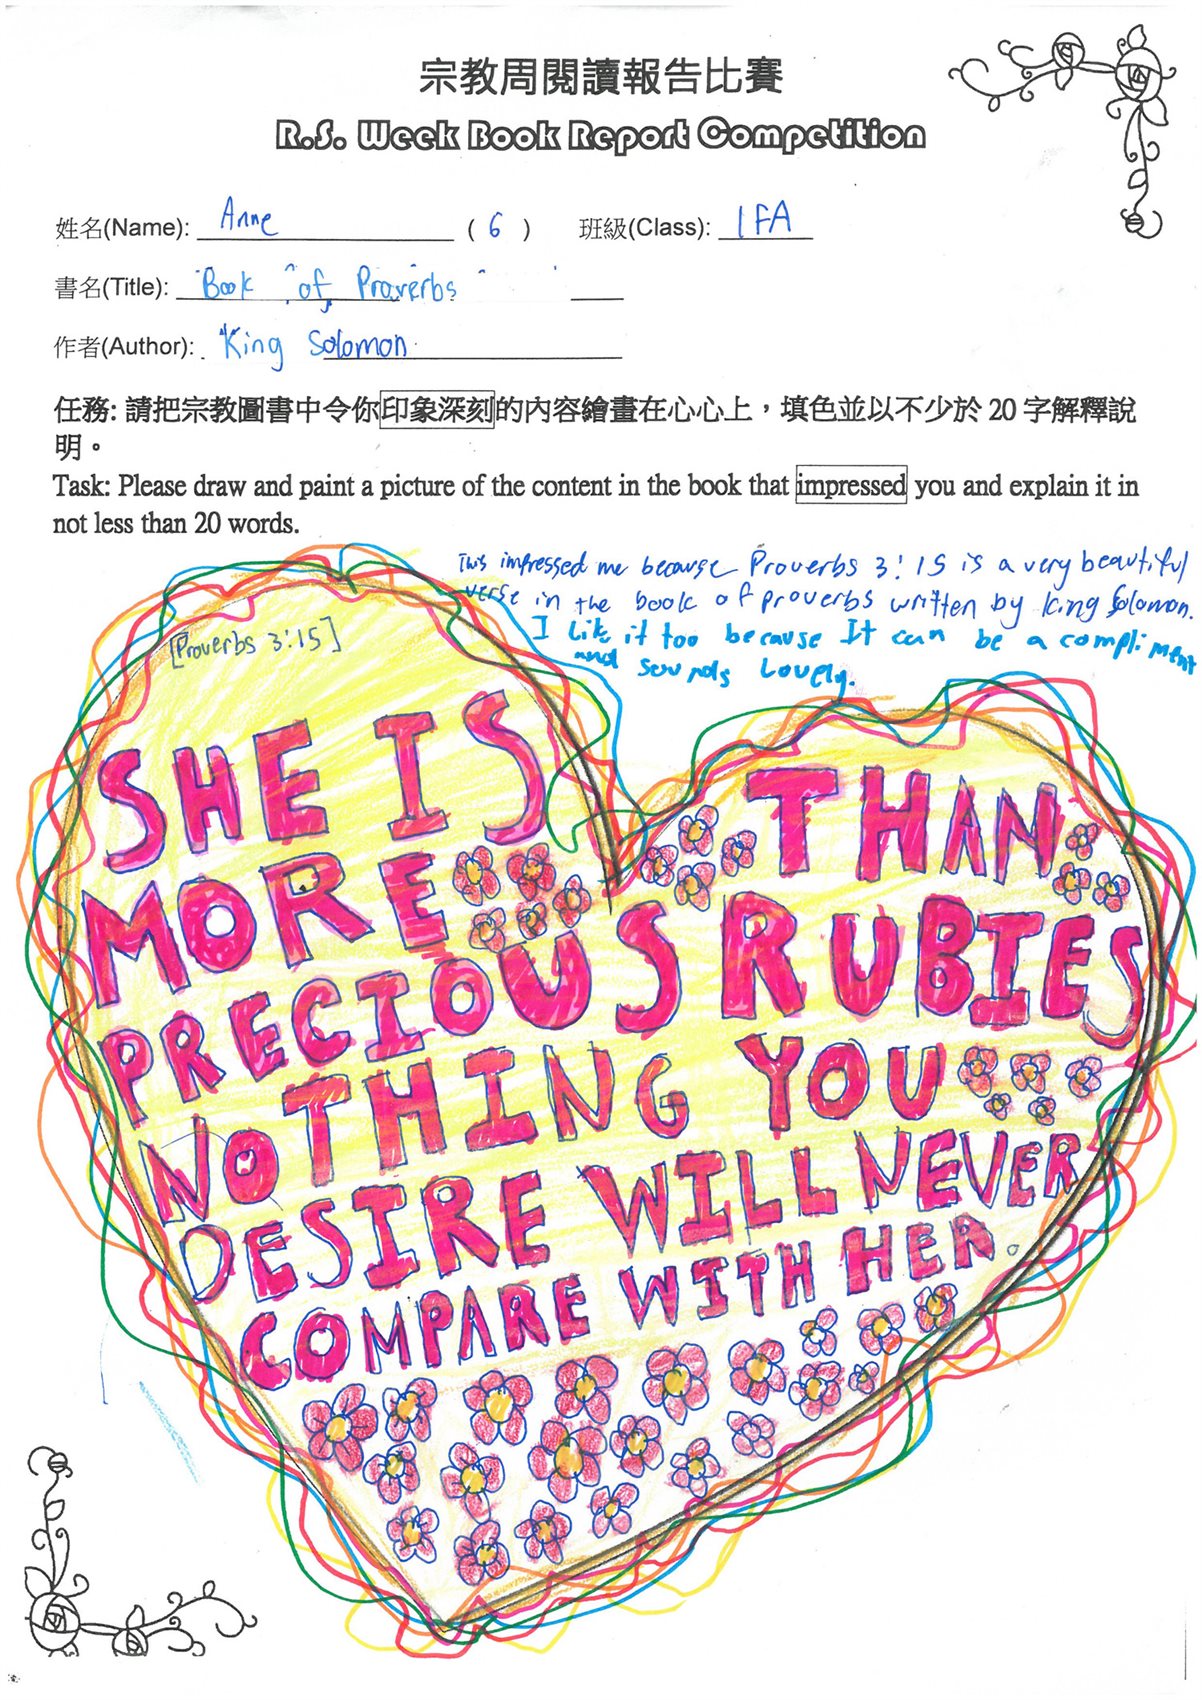 宗教周閱讀報告比賽
R.S. Week Book Report Competition
姓名(Name): Anne ( 6 ) 班級(Class): 1FA
書名(Title): Book of Proverbs
作者(Author): King Solomon
任務: 請把宗教圖書中令你印象深刻的內容繪畫在心心上，填色並以不少於 20 字解釋說
明。
Task: Please draw and paint a picture of the content in the book that impressed you and explain it in
not less than 20 words.
This impressed me because Proverbs 3:15 is a very beautiful
verse in the book of proverbs written by king Solomon.
I like it too because It can be a compliment
and sounds lovely.
[Proverbs 3:15]
SHE IS
MORE THAN
PRECIOUS RUBIES
NOTHING YOU
DESIRE WILL NEVER
COMPARE WITH HER.